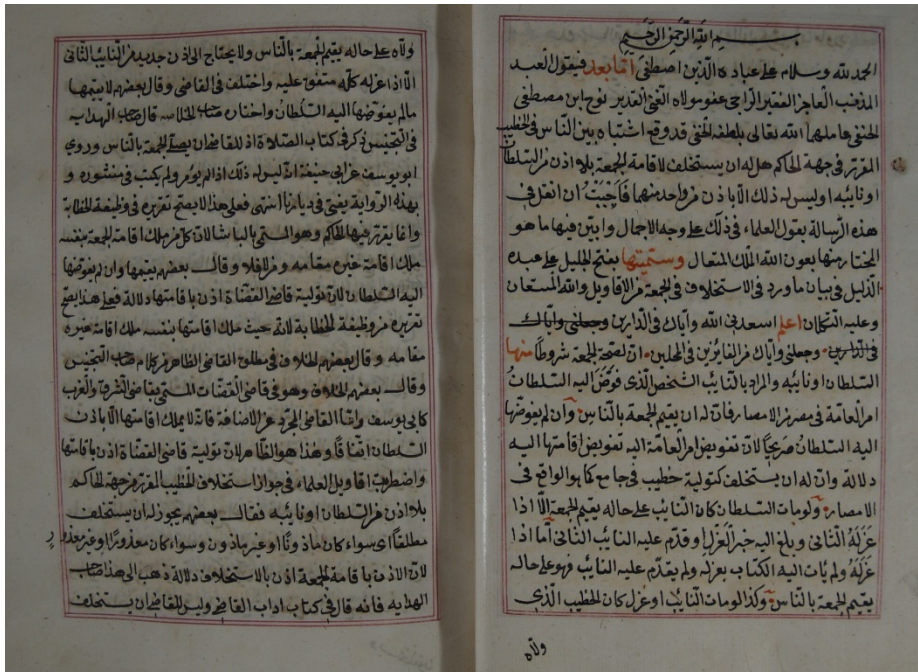 بسم الله الرحمن الرحيم
الحمد لله وسلام على عباده الذين اصطفى اما بعد فيقول العبد
المذنب العاجز الفقير الراجى عفو مولاه الغنى القدير نوح ابن مصطفى
الحنفى عاملهما الله تعالى بلطفه الخفى قد وقع اشتباه بين الناس فى الخطيب
المقرر فى جهة الحاكم هل له ان يستخلف لاقامة الجمعة بلا اذن من السلطان
او نائبه او ليس له ذلك الا باذن من واحد منهما فاجبت ان انقل فى
هذه الرسالة بقول العلماء فى ذلك على وجه الاجمال وابين فيها ما هو
المختار منها بعون الله الملك المتعال وسميتها بفتح الجليل على عبده
الذليل فى بيان ما ورد فى الاستخلاف فى الجمعة من الاقاويل والله المستعان
وعليه التكلان اعلم اسعدنى الله واياك فى الدارين وجعلنى واياك
فى الدارين وجعلنى واياك من الفايزين فى المحلين ان لصحة الجمعة شروطا منها
السلطان او نائبه والمراد بالنايب الشخص الذى فوض اليه السلطان
امر العامة فى مصر من الامصار فان له ان يقيم الجمعة بالناس وان لم يفوضها
اليه السلطان صريحا لان تفويض امر العامة اليه تفويض اقامتها اليه
دلالة وان له ان يستخلف كتولية خطيب فى جامع كما هو الواقع فى
الامصار ولو مات السلطان كان النايب على حاله يقيم الجمعة الا اذا
عزله الثانى وبلغ اليه خبر العزل او قدم عليه النايب الثانى اما اذا
عزله ولم يأت اليه الكتاب بعزله ولم يقدم عليه النايب فهو على حاله
يقيم الجمعة بالناس وكذا لو مات النايب او عزل كان الخطيب الذى
ولاه
ولاه على حاله يقيم الجمعة بالناس ولا يحتاج الى اذن جديد من النايب الثانى
الا اذا عزله كله متفق عليه واختلف فى القاضى وقال بعضهم لا يقيمها
ما لم يفوضها اليه السلطان واختاره صاحب الخلاصه قال صاحب الهدايه
فى التجنيس ذكر فى كتاب الصلاة اذ للقاضى ان يصلى الجمعة بالناس وروى
ابو يوسف عن ابى حنيفة انه ليس له ذلك اذا لم يؤمر ولم يكتب فى منشوره و
بهذه الرواية يفتى فى ديارنا انتهى فعلى هذا لا يصح تقريره فى وظيفة الخطابة
وانما يقرر فيها الحاكم وهو المسمى بالباشا لان كل من ملك اقامة الجمعة بنفسه
ملك اقامة غيره مقامه ومن لا فلا وقال بعضهم يقيمها وان لم يفوضها
اليه السلطان لان تولية قاضى القضاة اذن باقامتها دلالة فعلى هذا يصح
تقريره فى وظيفة الخطابة لانه حيث ملك اقامتها بنفسه ملك اقامة غيره
مقامه وقال بعضهم الخلاف فى مطلق القاضى الظاهر من كلام صاحب التجنيس
وقال بعضهم الخلاف وهو فى قاضى القضات المسمى بقاضى الشرق والغرب
كابى يوسف واما القاضى المجرد عن الاضافة فانه لا يملك اقامتها الا باذن
السلطان اتفاقا وهذا هو الظاهر لان تولية قاضى القضاة اذن باقامتها
واضطربت اقاويل العلماء فى جواز استخلاف الخطيب المقرر من جهة الحاكم
بلا اذن من السلطان او نائبه فقال بعضهم يجوز له ان يستخلف
مطلقا اى سواء كان ماذونا او غير ماذون وسواء كان معذورا او غير معذور
لان الاذن باقامة الجمعة اذن بالاستخلاف دلالة ذهب الى هذا صاحب
الهدايه فانه قال فى كتاب اداب القاضى وليس للقاضى ان يستخلف